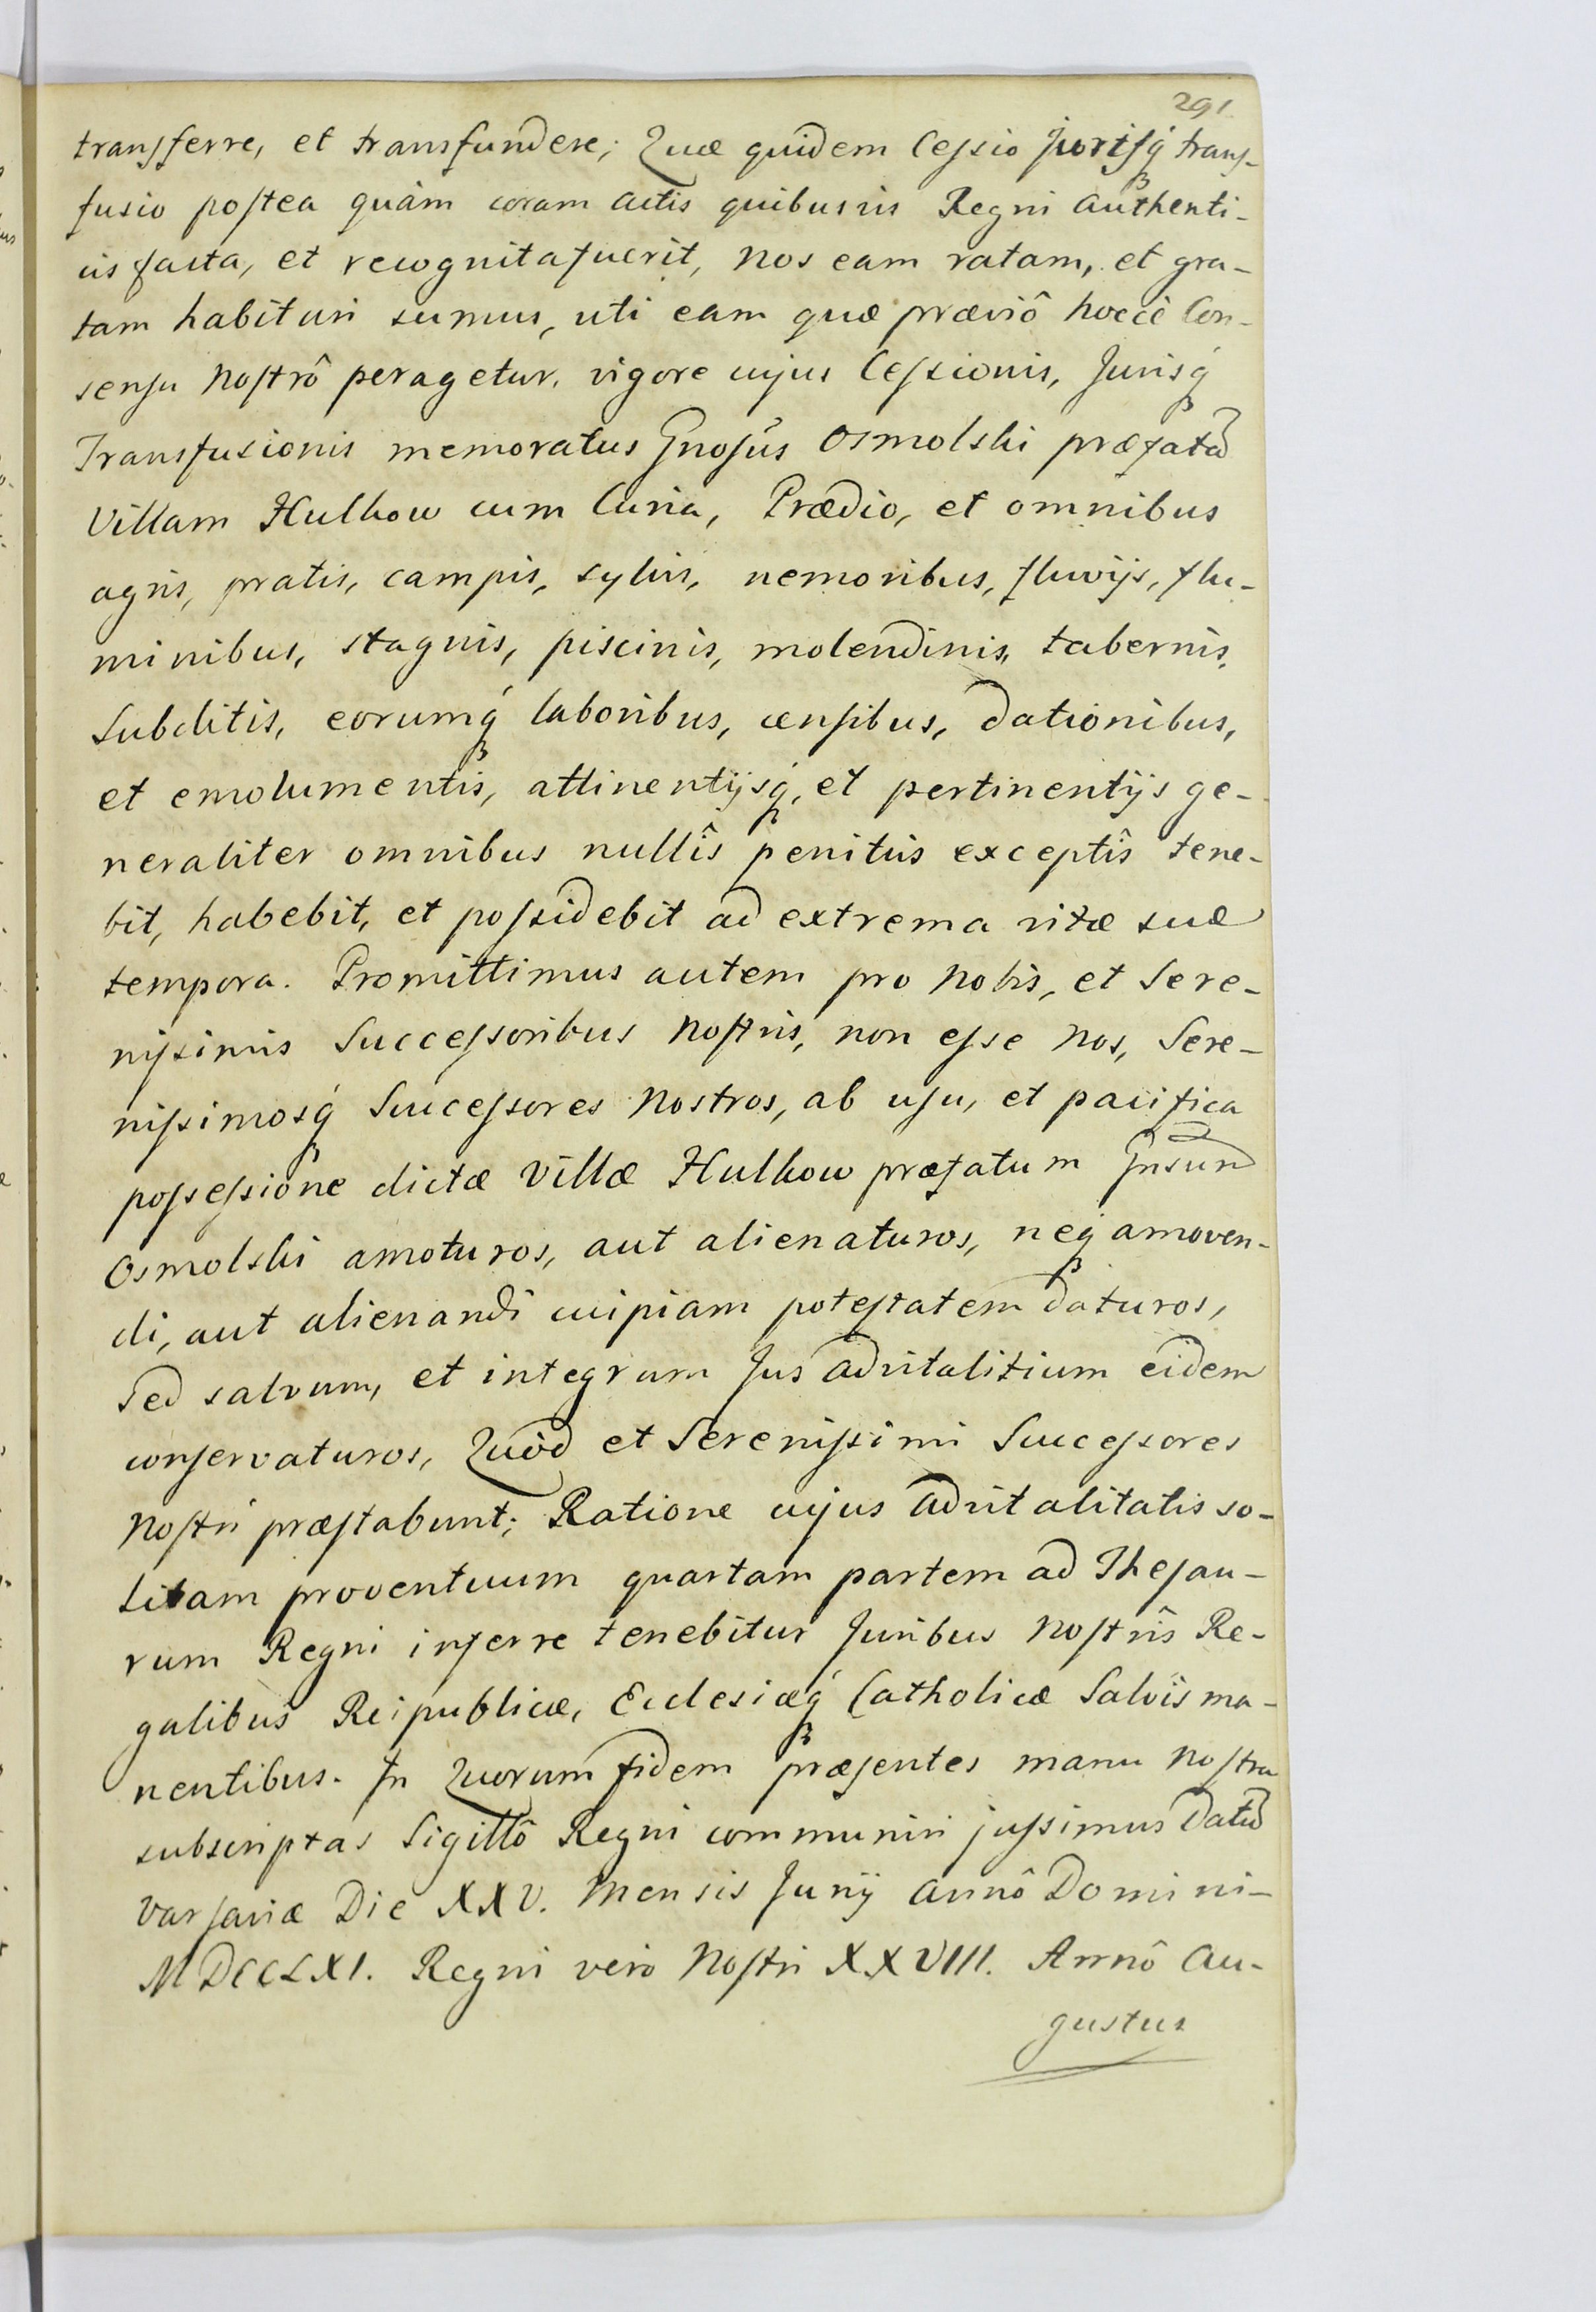 291
transferre, et transfundere; Quæ quidem Cessio jurisq́ trans-
fusio postea quàm coram actis quibusvis Regni authenti-
cis facta, et recognita fuerit, nos eam ratam, et gra-
tam habituri sumus, uti eam quæ præviô hocce Con-
sensu nostrô peragetur. vigore cujus Cessionis, Jurisq́
Transfusionis memoratus Gnosus Osmolski præfatã
Villam Hulkow cum Curia, Prædio, et omnibus
agris, pratis, campis, sylvis, nemoribus, fluvijs, flu-
minibus, stagnis, piscinis, molendinis, tabernis,
subditis, eorumq́ laboribus, censibus, dationibus,
et emolumentis, attinentijsq́, et pertinentijs ge-
neraliter omnibus nullîs penitus exceptîs tene-
bit, habebit, et possidebit ad extrema vitæ suæ
tempora. Promittimus autem pro nobis, et Sere-
nissimis Successoribus nostris, non esse nos, Sere-
nissimosq́ Successores nostros, ab usu, et pacifica
possessione dictæ Villæ Hulkow præfatum Gnsum
Osmolski amoturos, aut alienaturos, neq amoven-
di, aut alienandi cuipiam potestatem daturos,
sed salvum, et integrum Jus advitalitium eidem
conservaturos, Quòd et Serenissimi Successores
nostri præstabunt; Ratione cujus advitalitatis so-
litam proventuum quartam partem ad Thesau-
rum Regni inferre tenebitur Juribus nostrîs Re-
galibus Reipublicæ, Ecclesiæq́ Catholicæ Salvis ma-
nentibus. In Quorum fidem præsentes manu nostra
subscriptas Sigillô Regni communiri jussimus Datũ
Varsaviæ Die XXV. Mensis Junij annô Domini-
MDCCLXI. Regni verò nostri XXVIII. Annô Au-
gustus